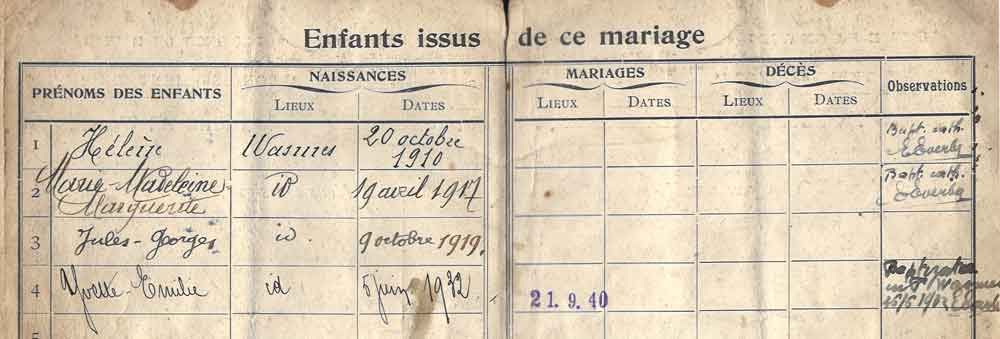 Enfants issus de ce mariage
PRÉNOMS DES ENFANTS NAISSANCES MARIAGES DÉCÈS Observations
LIEUX DATES LIEUX DATES LIEUX DATES
1 Hélène Wasmes 20 octobre 1910 Bapt. cath.
2 Marie-Madeleine- Marguerite id 19 avril 1917 Bapt. cath.
3 Jules-Georges id. 9 octobre 1919.
4 Yvette-Emilie id 5 juin 1932 21.9.40
5